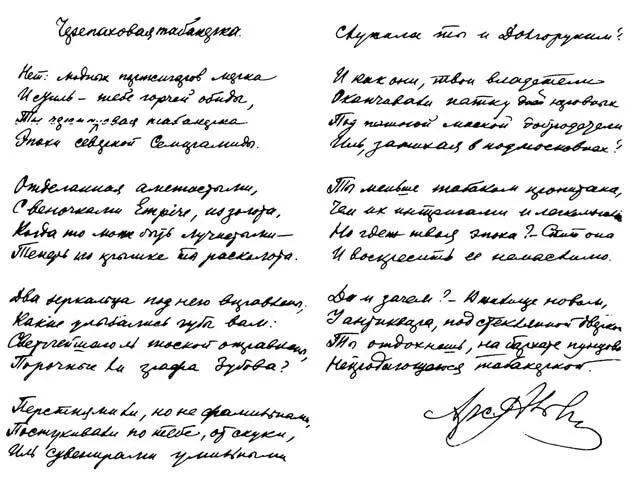 Черепаховая табакерка.
Нет: модных портсигаров мелка
И стиль – тебе горчей обиды,
Ты черепаховая табакерка
Эпохи северной Семирамиды.
Отделанная аметистами,
С веночками Empire, из золота,
Когда то може быть лучистыми –
Теперь по крышке ты расколота.
Два зеркальца под нею вправлены,
Какие улыбались губы вам:
Светлейшего тоской отравлены,
Порочные ли графа Зубова?
Перстнями ли, но не фамильными,
Постукивали по тебе, от скуки,
Иль сувенирами умильными
Служила ты и Долгоруким?
И как они, твои владетели
Оканчивали пытку дней
Под пышной маской добродетели
Иль, затихая в подмосковных?
Ты меньше табаком пропитана,
Чем их интригами и
Но где ж твоя эпоха? – Спит она
И воскресить ее немыслимо.
Да и зачем? –
У антиквара, под стеклянной дверкой
Ты отдохнешь, на бархате пунцовом
Непродающеюся табакеркой.